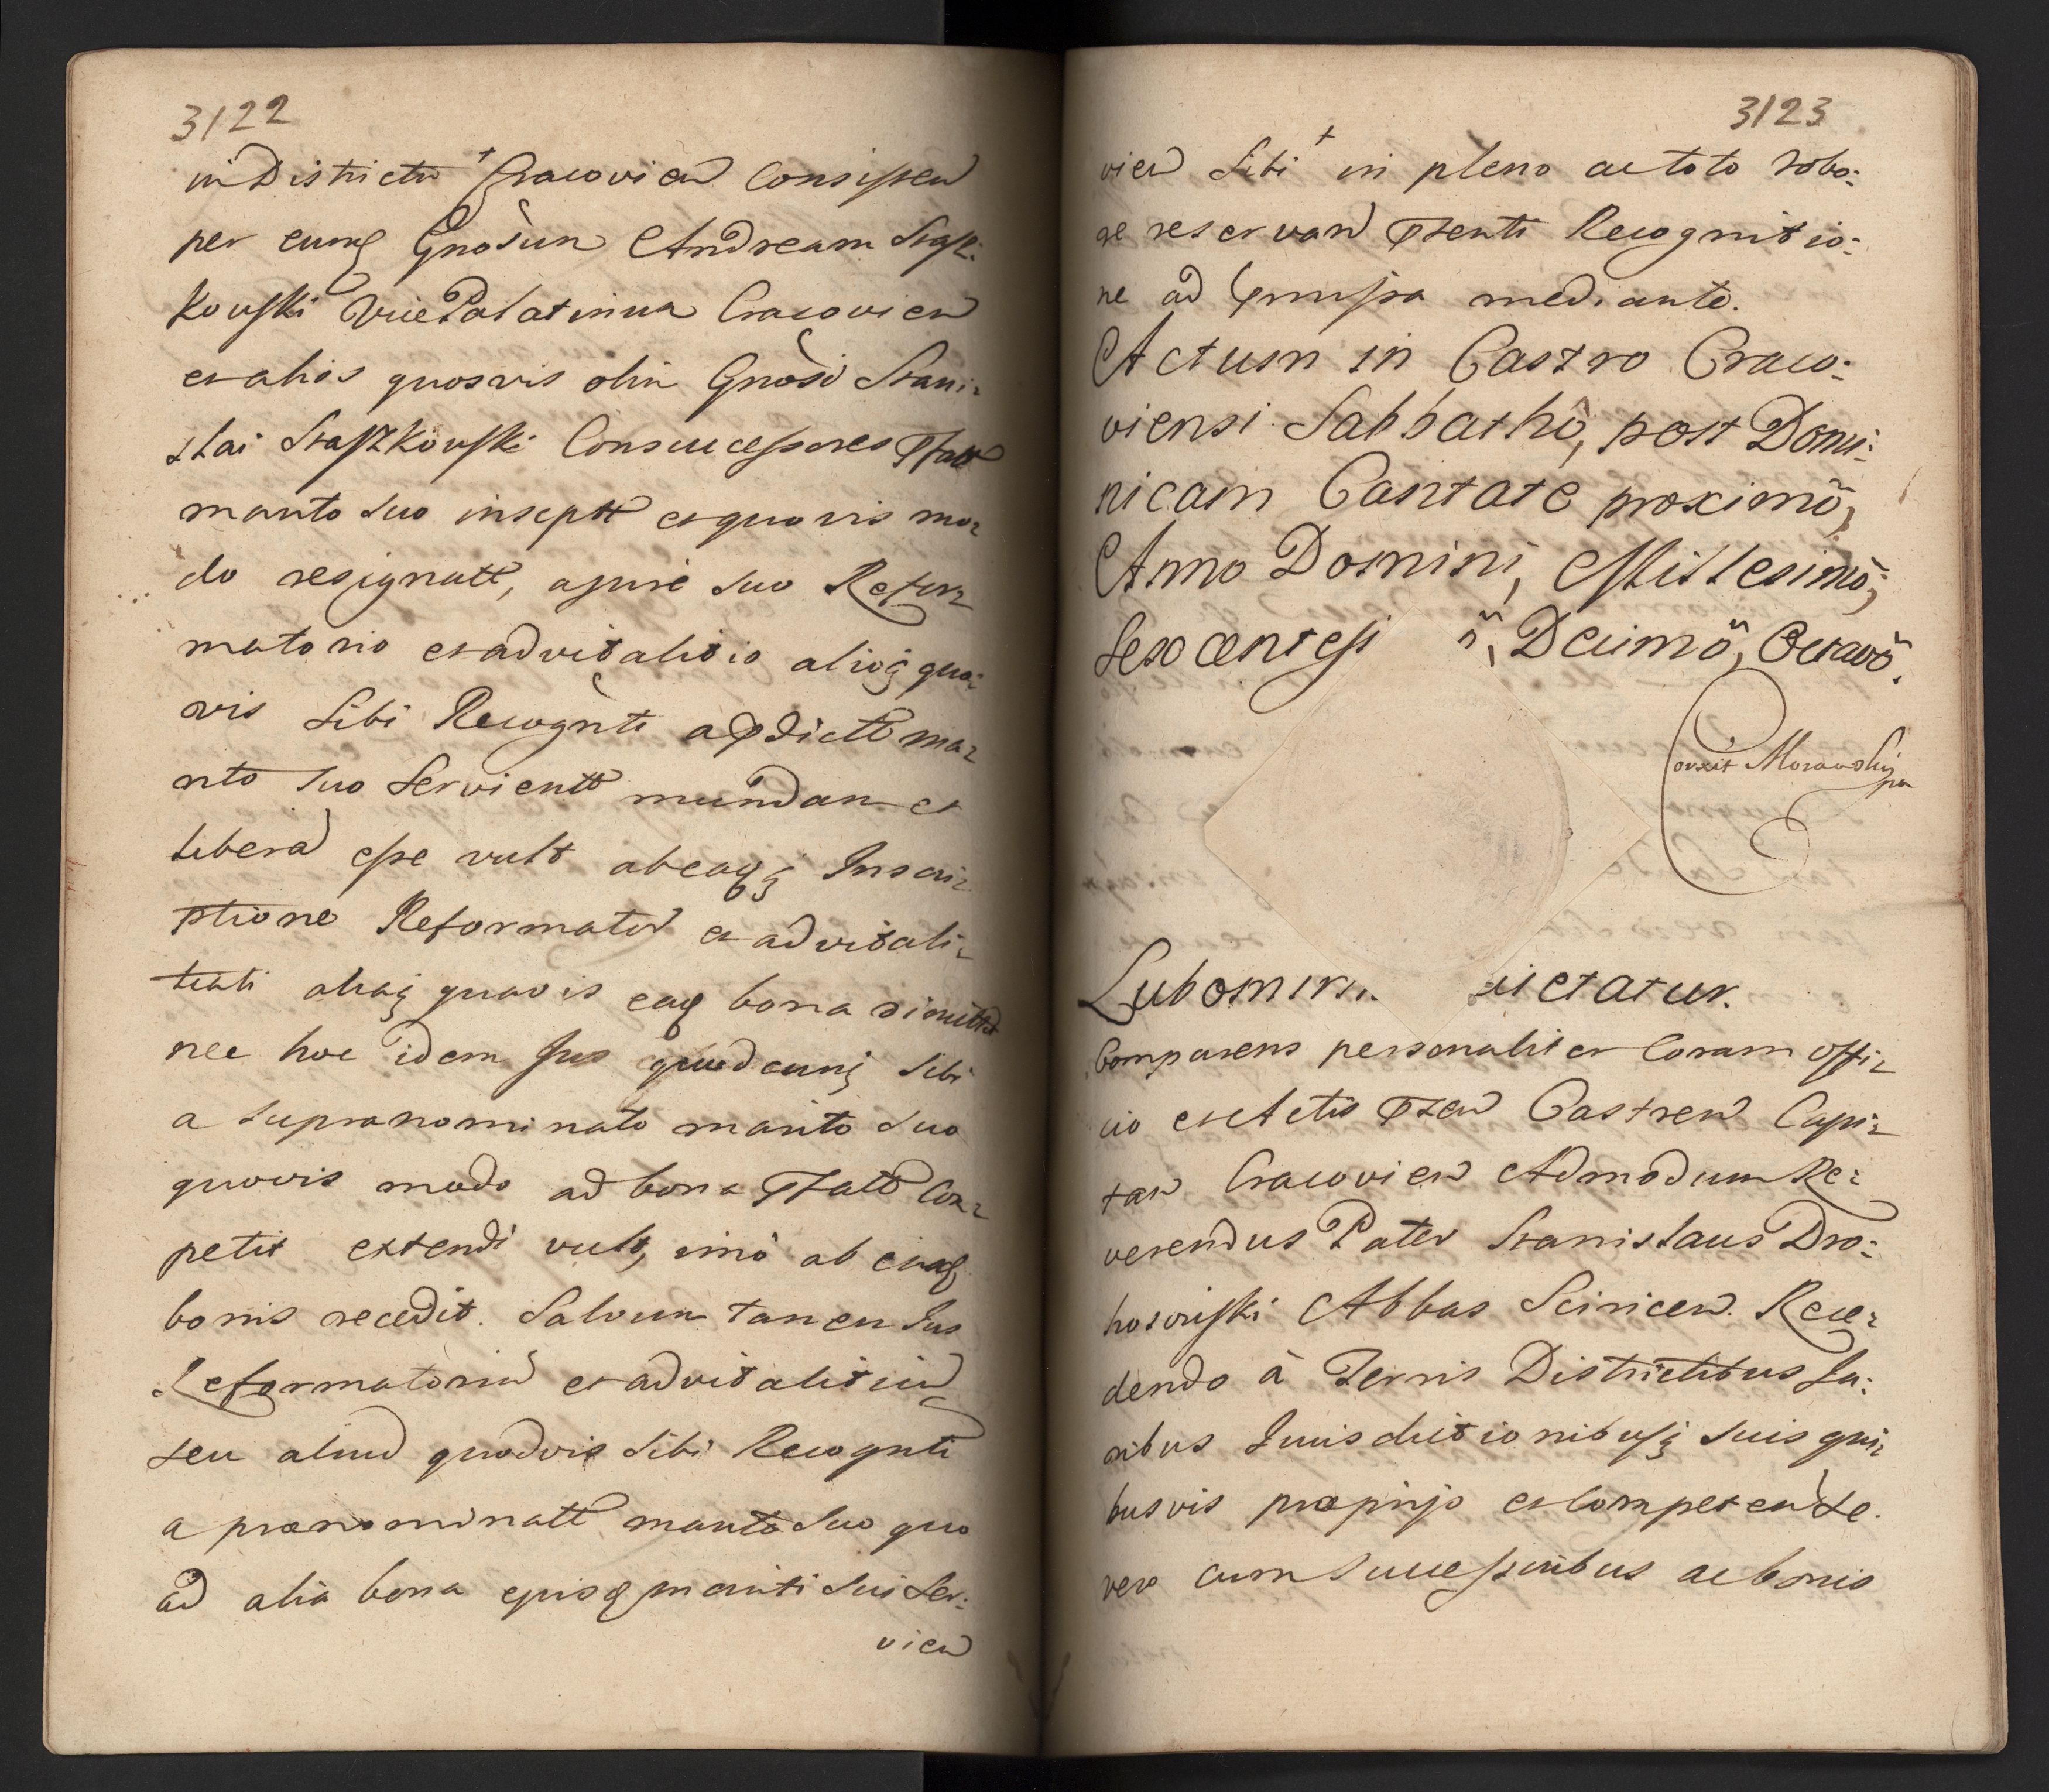 3122
in Districtu + Cracovien Consisten
per eunq Gnosum Andream Stasz:
kowski Vice Palatinum Cracovien
et alios quosvis olim Gnosi Stani:
slai Staszkowski Consuccessores
manto suo inscptt et quovis mo:
do resignatt, a jure suo Refor:
matorio et advitalitio alioq quo:
vis sibi Recognti a pdicto ma:
rito suo servientt mundam et
liberã esse vult ab eaqq Inscri:
ptione Reformator et advitali:
tiali aliaq quavis eaq bona dimitt
nec hoc idem Jus quodcunq sibi
a supranominato marito suo
quovis modo ad bona Com:
petit extendi vult, imo ab eisdq
bonis recedit. Salvum tamen Jus
Reformatoriũ et advitalitiũ
seu aliud quodvis sibi Recognti
a prænominatt marito suo quo
ad alia bona ejusq mariti sui ser:
vien
3123
vien sibi + in pleno ac toto robo:
re reservan psenti Recognitio:
ne ad pmissa mediante.
Actum in Castro Craco:
viensi Sabbathô, post Domi:
nicam Cantate proximô,
Anno Domini, Millesimô,
Sexcentesi ô, Decimô, Octavô.
Corxit Morawski
mpa
Lubomirs. uietatur.
Comparens personaliter Coram offi:
cio et Actis psen Castren Capi:
tan Cracovien Admodum Re:
verendus Pater Stanislaus Dro:
hosviski Abbas Sciricen. Rece:
dendo â Terris Districtibus Ju:
ribus Jurisdictionibusq suis qui:
busvis proprijs et Competen se.
vero cum Successoribus ac bonis